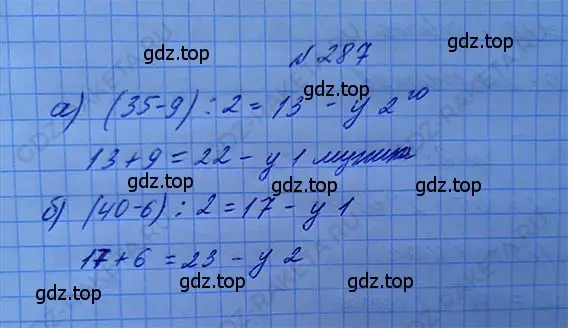 № 287
а) (35-9) : 2 = 13 - у 2 го
13 + 9 = 22 - у 1 мужика
б) (40-6) : 2 = 17 - у 1
17 + 6 = 23 - у 2
gdz.top
gdz.top
gdz.top
gdz.top
gdz.top
gdz.top
gdz.top
gdz.top